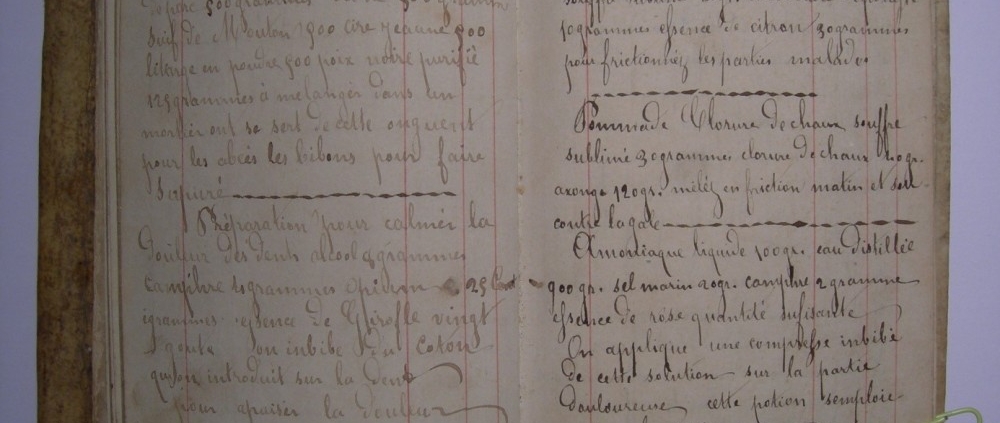 500 grammes
suif de Mouton 500 cire jeaune 500
litarge en poudre 500 poix noire purifié
125 grammes à melanger dans un
mortier ont se sert de cette onguent
pour les abcès les bibons pour faire
supuré
Préparation pour calmér la
douleur des dents alcool grammes
camphre 4 grammes opium 25
grammes essence de Girofle vingt
goute on inbibe du coton
qu'on introduit sur la dent
pour apaiser la douleur
50 grammes essence de citron 30 grammes
pour frictionnéz les parties malades
Pommade Clorure de chaux souffre
sublimé 30 grammes clorure de chaux 40 gr.
axonge 120 gr. mêléz en friction matin et soir
contre la gale
Amoniaque liquide 500 gr. eau distillée
900 gr. sel marin 20 gr. camphre 2 gramme
essence de rose quantité sufisante
On applique une compresse inbibé
de cette solution sur la partie
douloureuse cette potion semploie